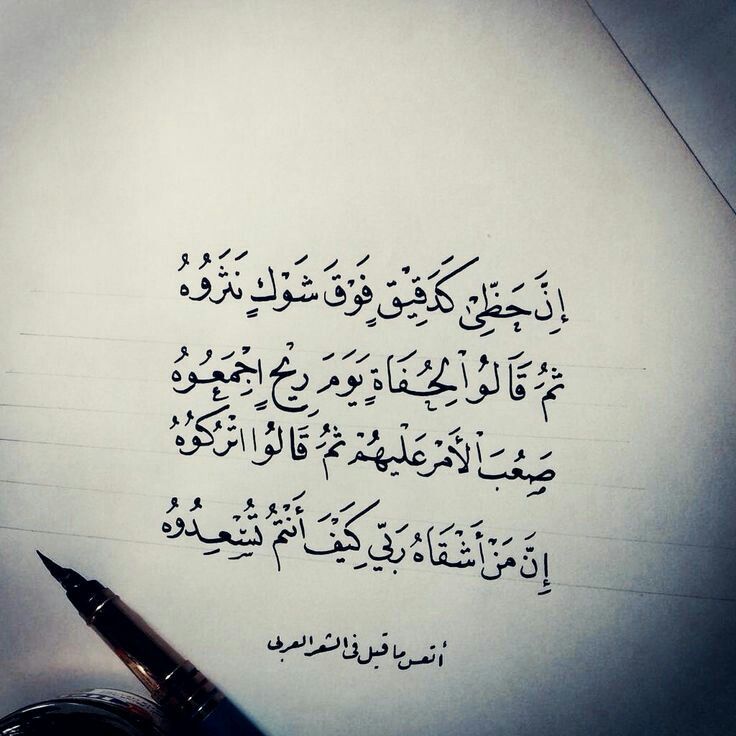 إِنَّ حَظِّيْ كَدَقِيْقٍ فَوْقَ شَوْكٍ نَثَرُوُهُ
ثُمَّ قَالُوُاْ لِحُفَاةٍ يَوَمَ رِيْحٍ اِجْمَعُوُهُ
صَعُبَ اْلأَمْرُ عَلَيْهُمْ ثُمَّ قَالُوُا اتْرُكُوُهُ
إِنَّ مَنْ أَشْقَاهُ رَبِّي كَيْفَ أَنْتُمُ تُسْعِدُوُهُ
أتعس ما قيل في الشعر العربي